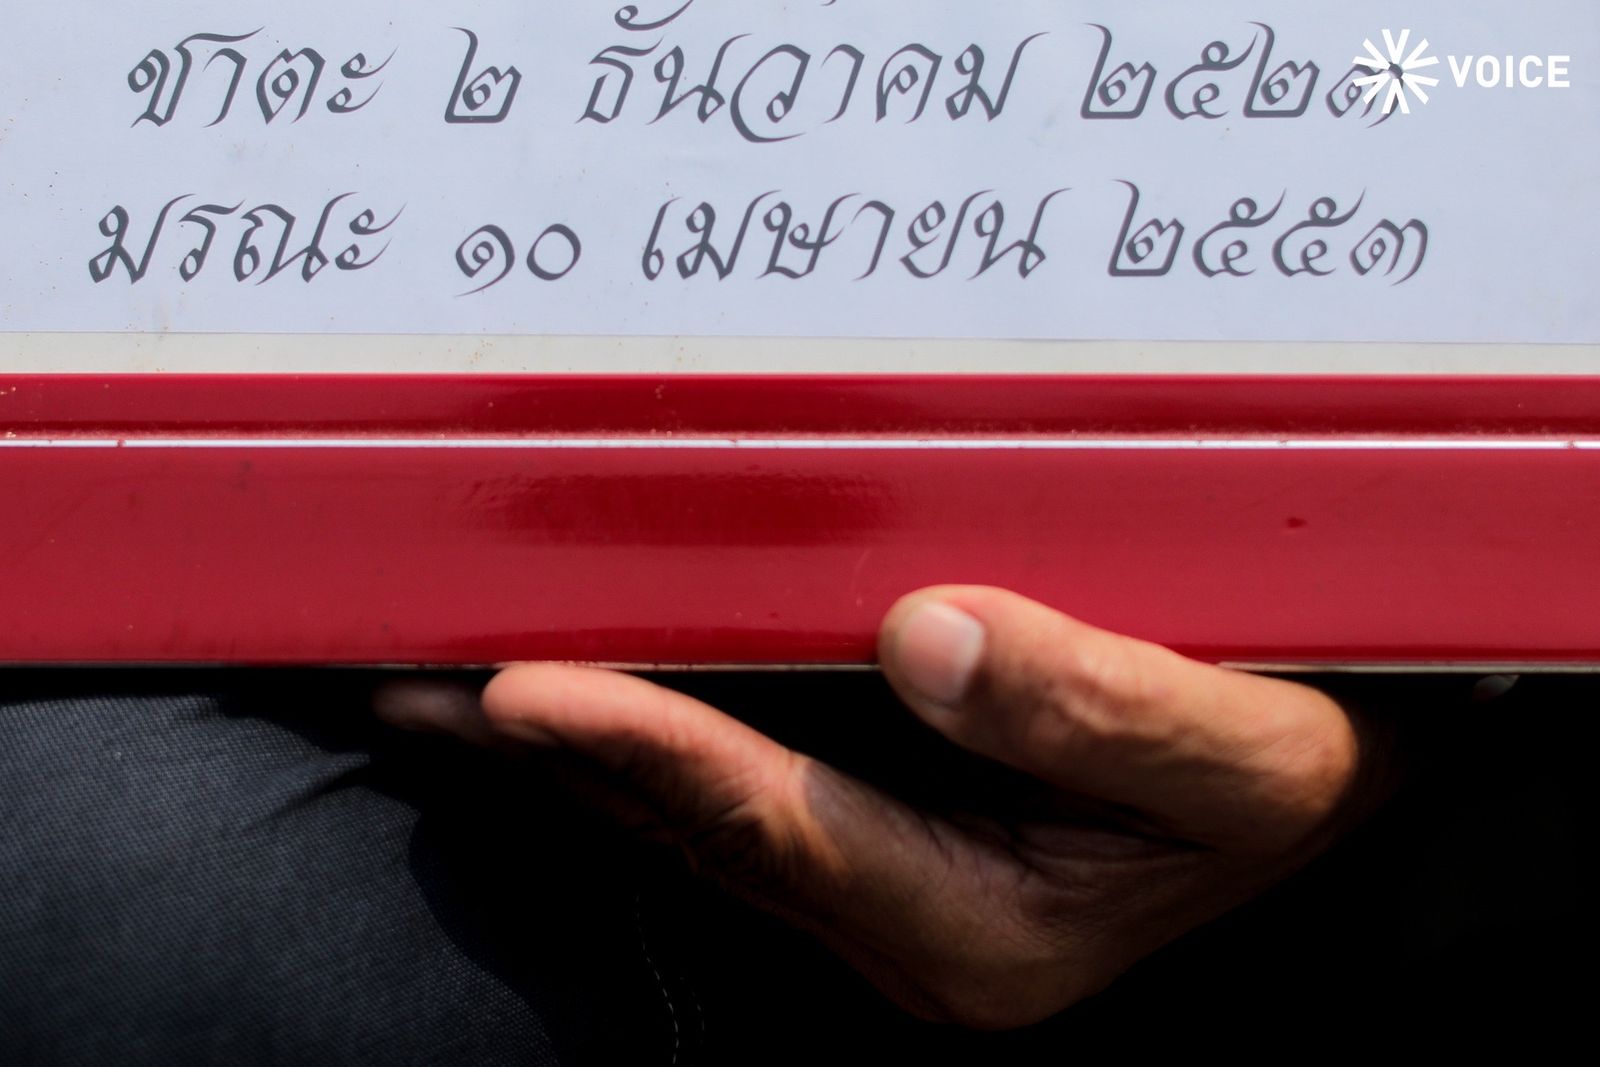 ชาตะ ๒ ธันวาคม ๒๕๒๓
VOICE
มรณะ ๑๐ เมษายน ๒๕๕๓